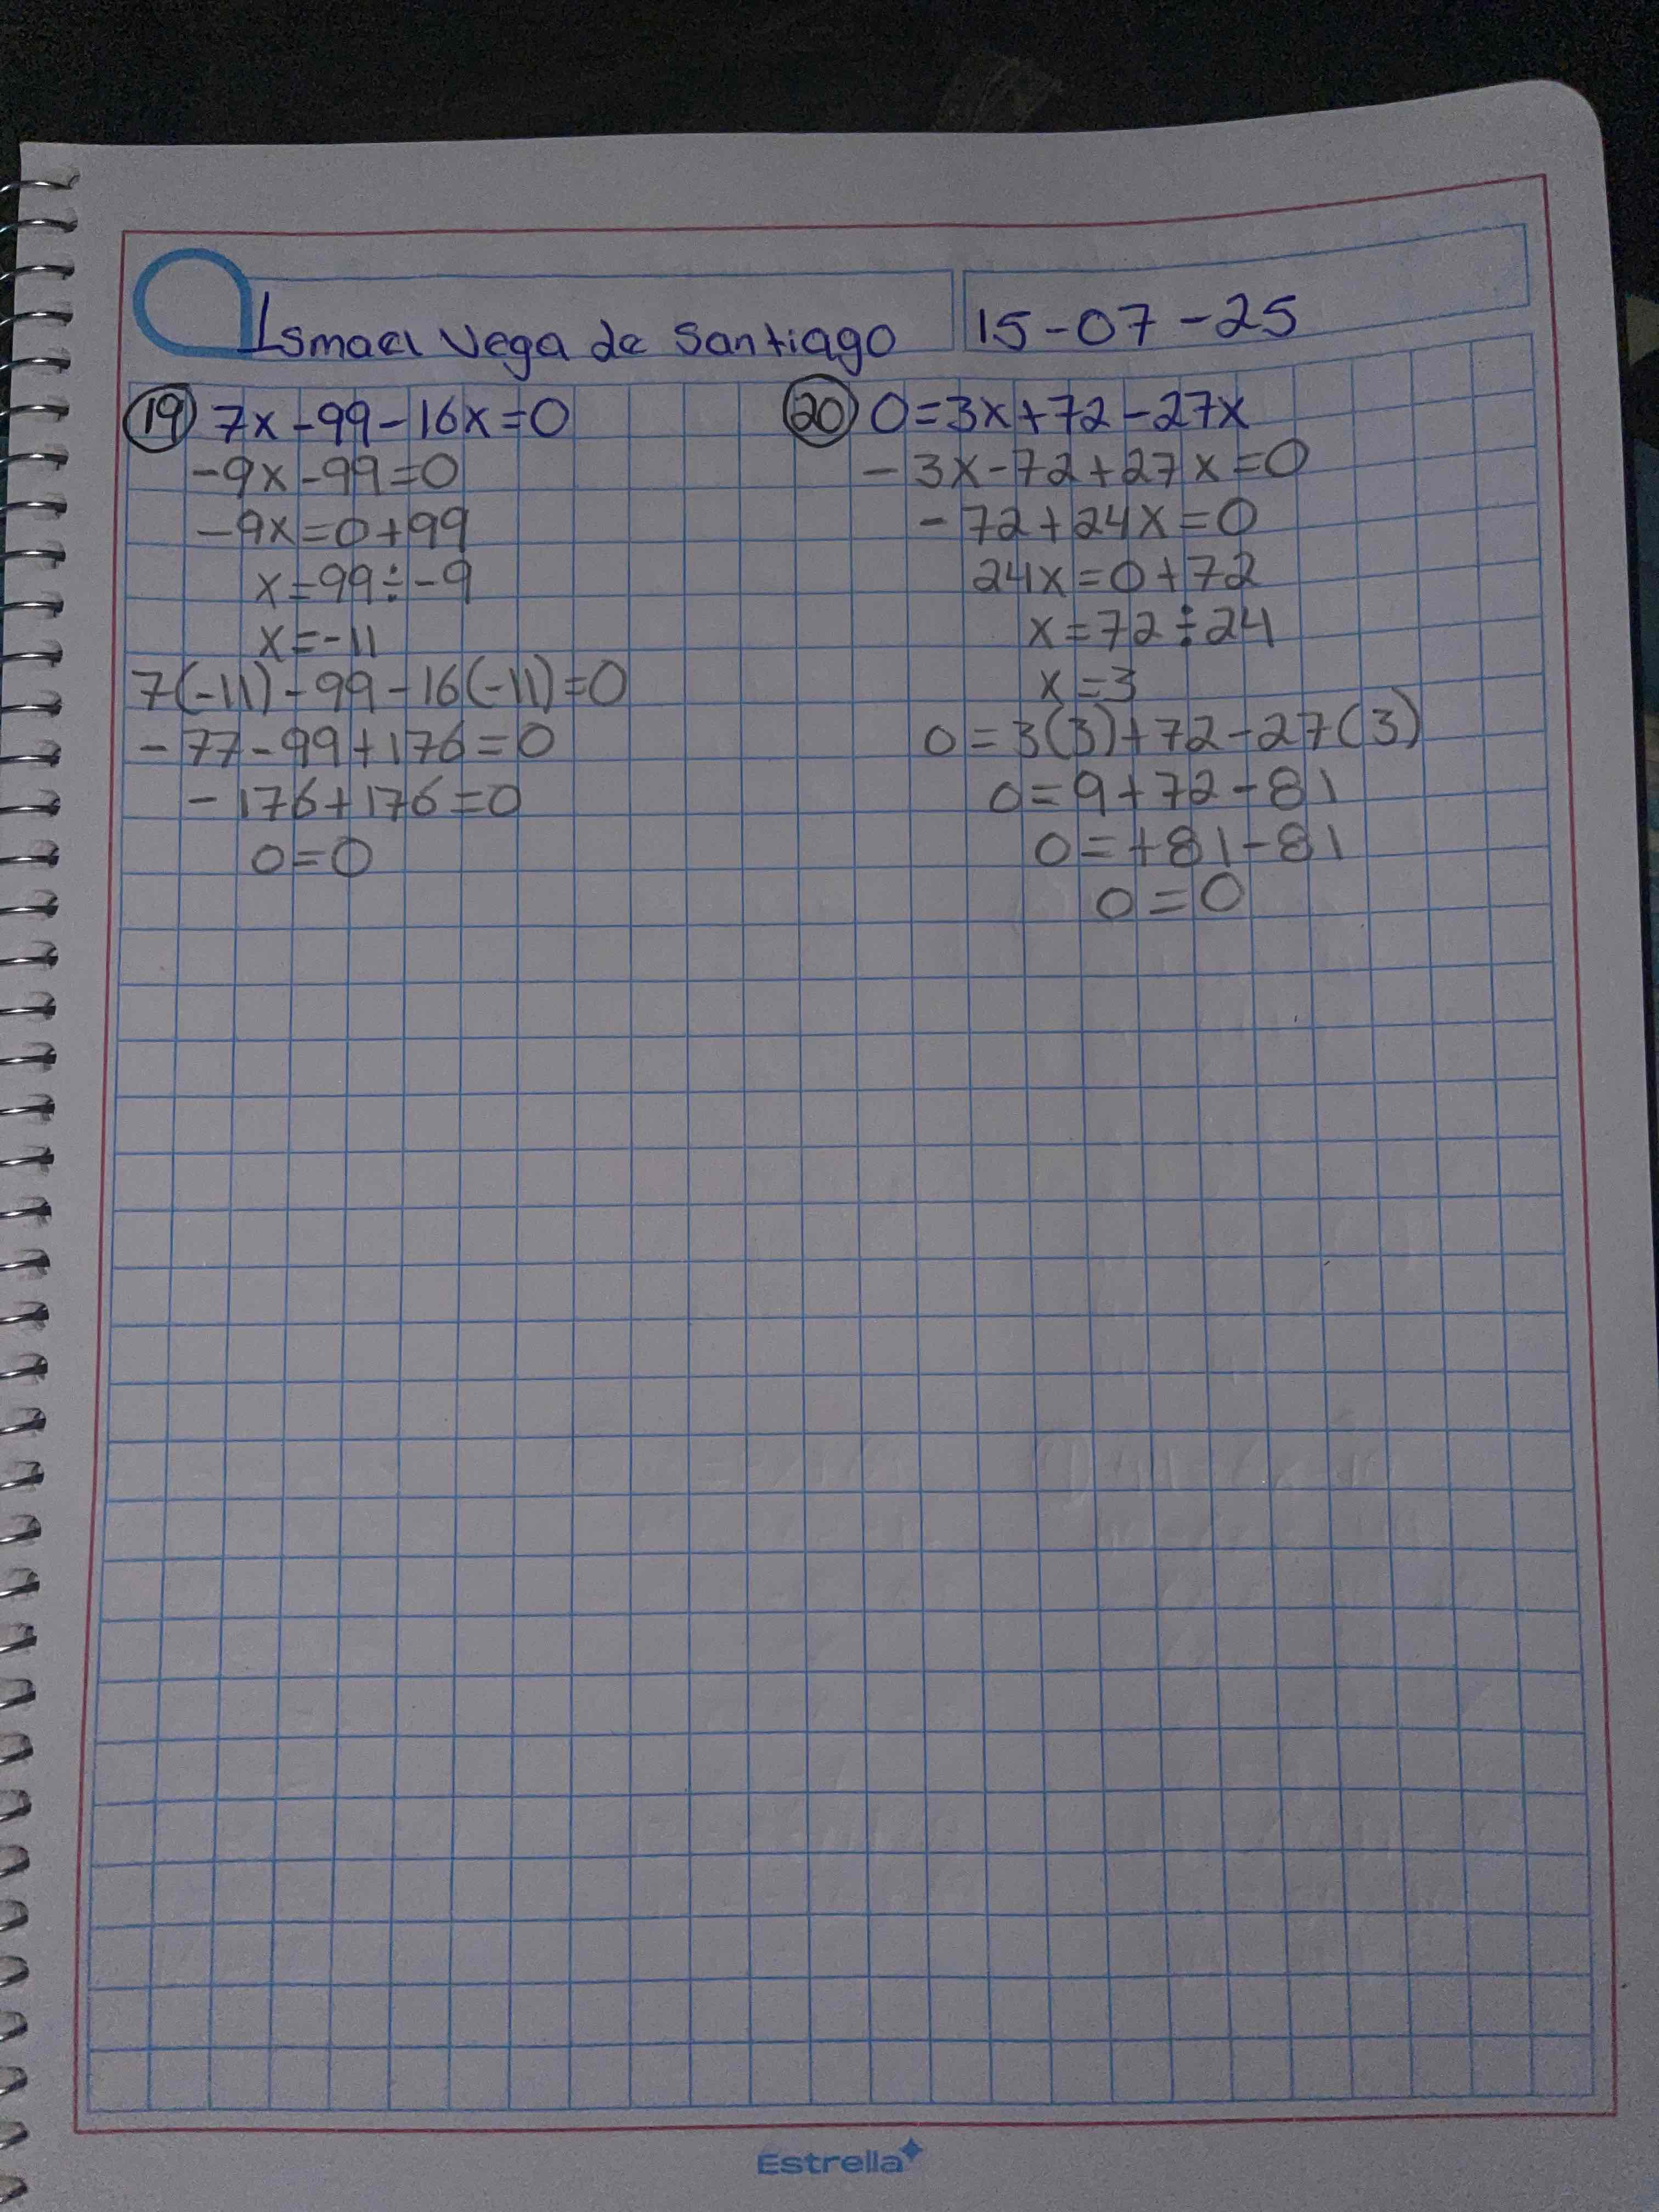 Ismael Vega de Santiago
15-07-25
19 7x-99-16x=0
-9x-99=0
-9x=0+99
x=99÷-9
x=-11
7(-11)-99-16(-11)=0
-77-99+176=0
-176+176=0
0=0
20 0=3x+72-27x
-3x-72+27x=0
-72+24x=0
24x=0+72
x=72÷24
x=3
0=3(3)+72-27(3)
0=9+72-81
0=+81-81
0=0
Estrella